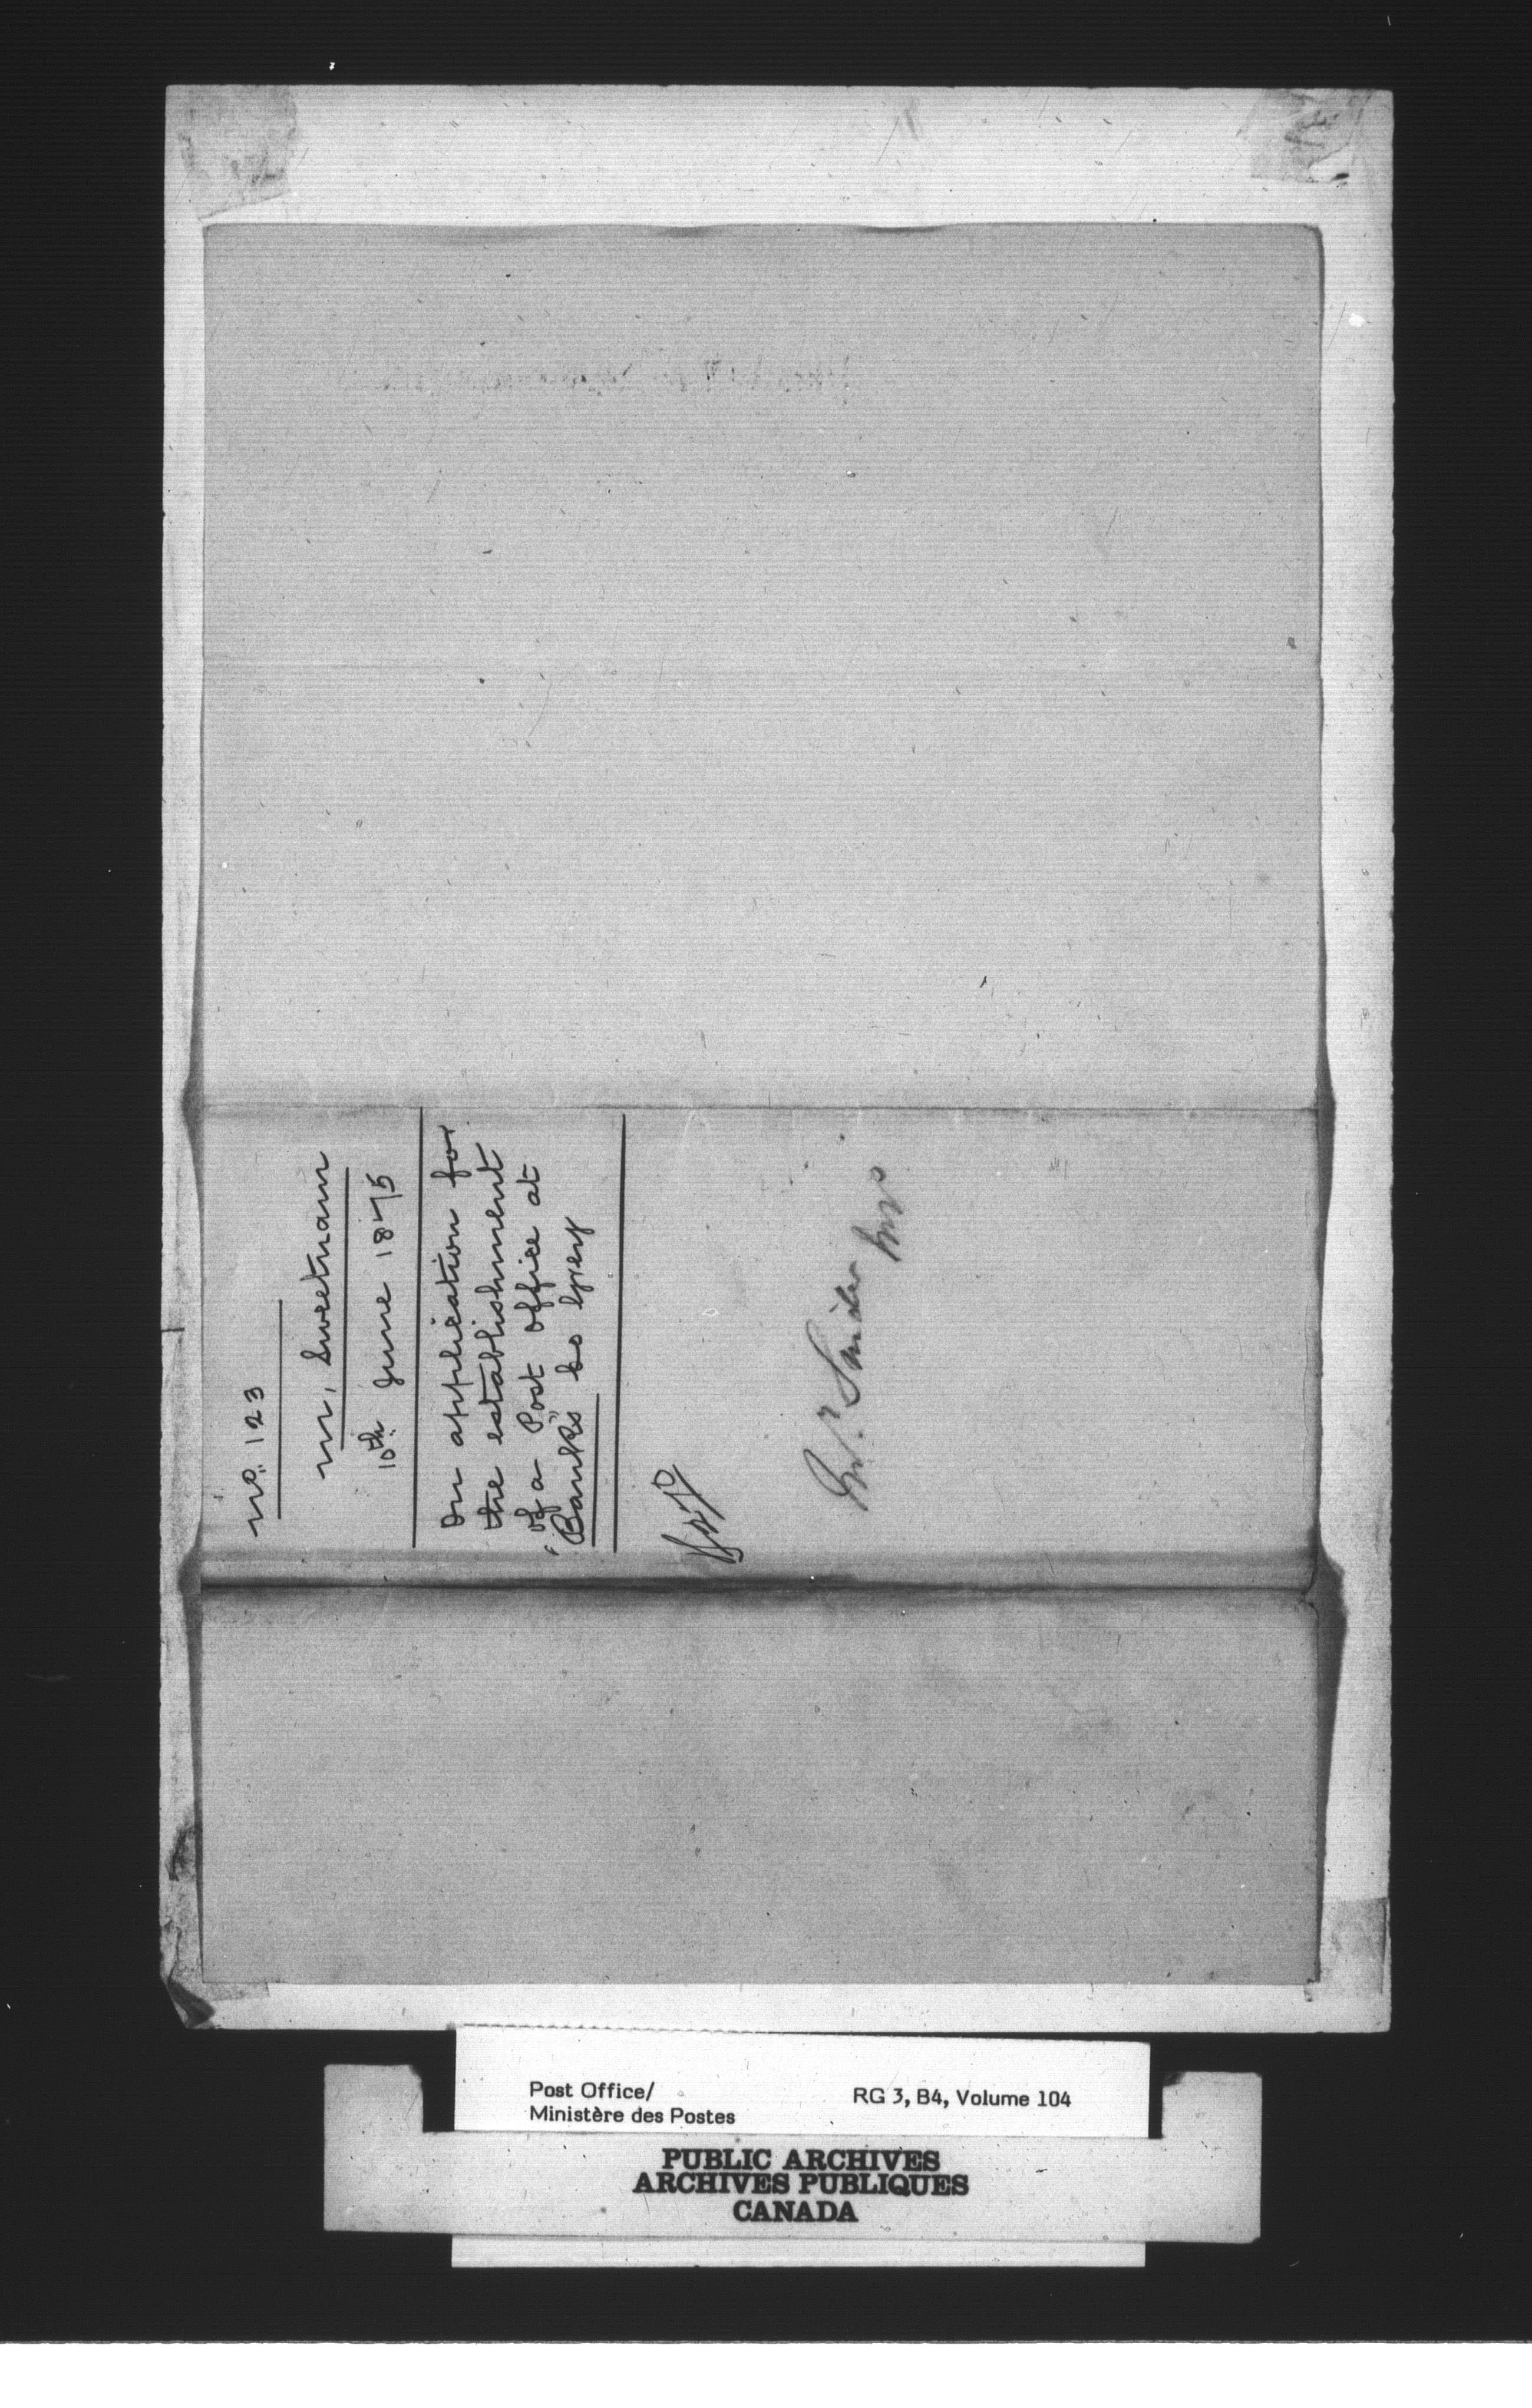 No. 123
Mr. Sweetnam
10th June 1875
On application for
the establishment
of a Post Office at
"Banks" Co Grey
Mr. Snider
Post Office/
Ministère des Postes
RG 3, B4, Volume 104
PUBLIC ARCHIVES
ARCHIVES PUBLIQUES
CANADA